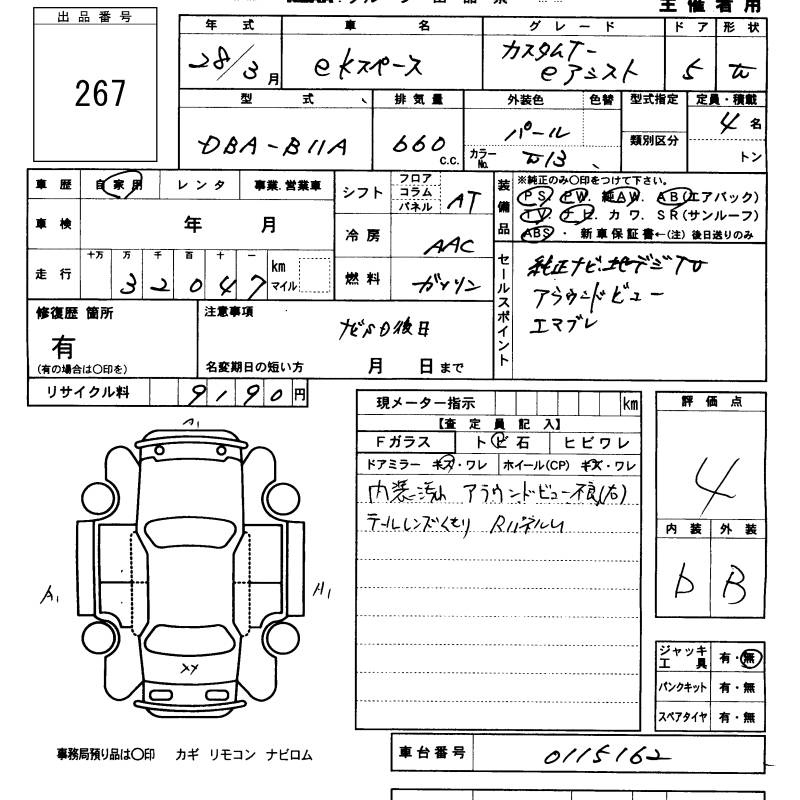 主催者用
出品番号
267
年式 車名 グレード ドア 形状
28/3月 ekスペース カスタムT- eアシスト 5
型式 排気量 外装色 色替 型式指定 定員・積載
DBA-B11A 660 C.C. パール 4名
カラーNo. W13 類別区分 トン
車歴 自家用 レンタ 事業、営業車
シフト フロア コラム パネル AT
装備品 ※純正のみ〇印をつけて下さい。
PS. PW. 純AW. AB(エアバック)
TV. ナビ. カワ. SR(サンルーフ)
ABS ・ 新車保証書←(注) 後日送りのみ
車検 年 月
冷房 AAC
走行 十万 万 千 百 十 一
32047 km マイル
燃料 ガソリン
セールスポイント 純正ナビ.地デジTV
アラウンドビュー
エマブレ
修復歴 箇所
有
(有の場合は〇印を)
注意事項
ナビROM後日
名変期日の短い方 月 日まで
リサイクル料 9190円
現メーター指示 km
【査定員記入】
Fガラス トビ石 ヒビワレ
ドアミラー キズ・ワレ ホイール(CP) キズ・ワレ
内装汚れ アラウンドビュー不良(右)
テールレンズくもり RパネルU
評価点
4
内装 外装
D B
A1
A1
A1
XY
ジャッキ工具 有・無
パンクキット 有・無
スペアタイヤ 有・無
事務局預り品は〇印 カギ リモコン ナビロム
車台番号 0115162